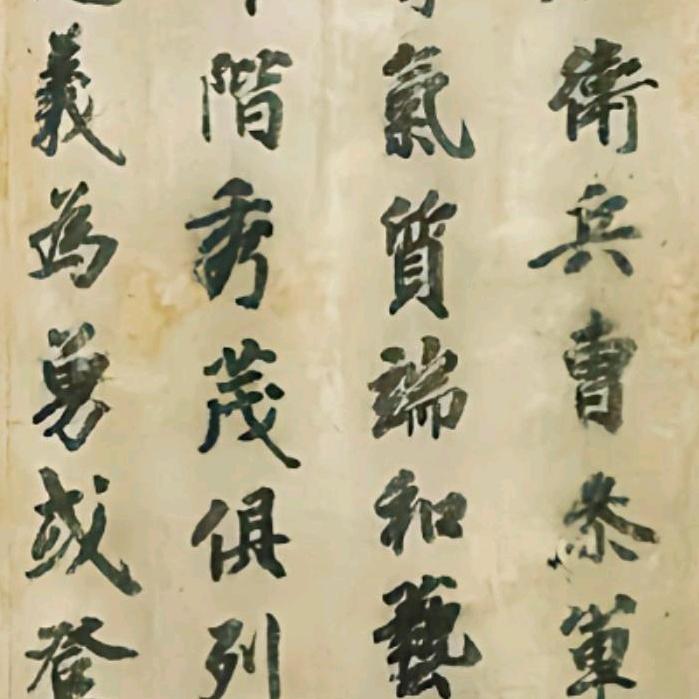 衛兵曹叅軍
氣質端和藝
階秀茂俱列
義為勇或登